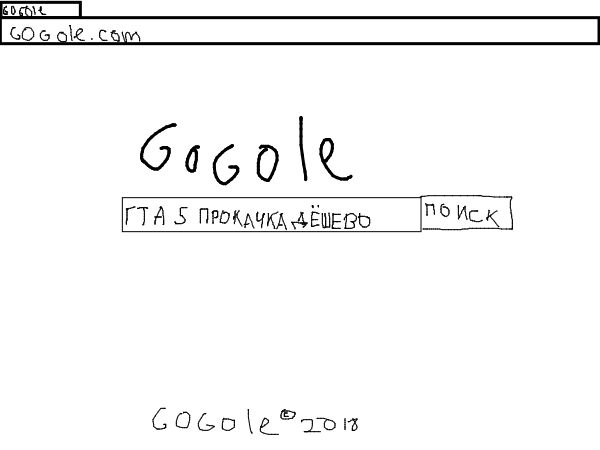 GOGOle
GOGOle.com
GoGole
ГТА 5 ПРОКАЧКА ДЁШЕВО
ПОИСК
GOGOle © 2018